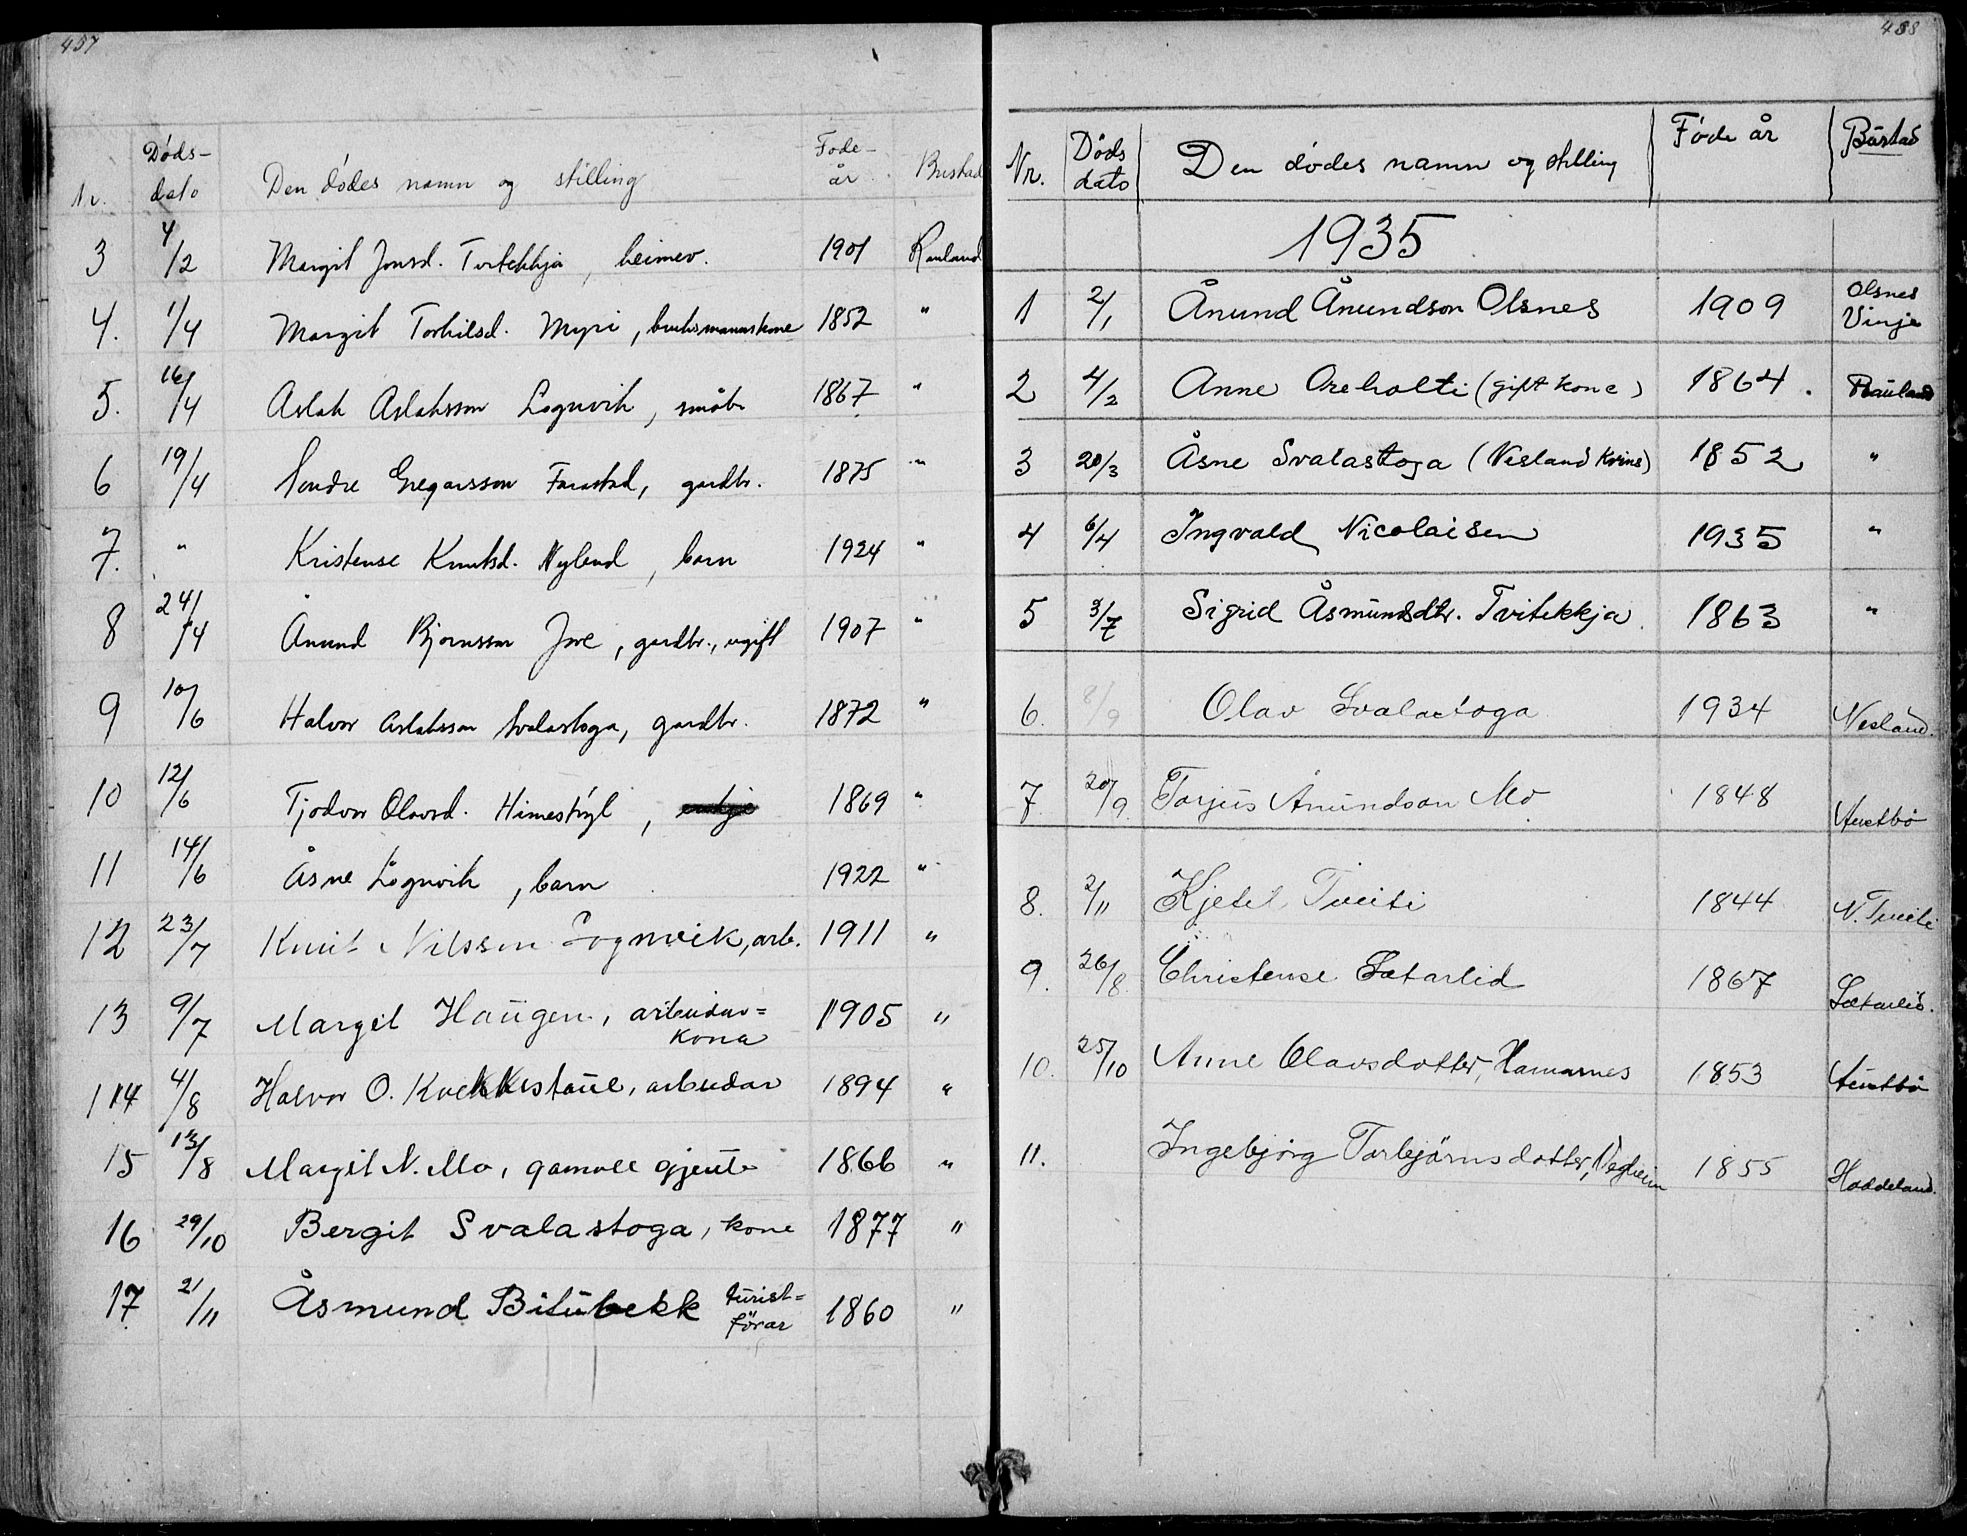 457
Nr. Døds- dato Den dødes namn og stilling Føde- år Bustad
3 4/2 Margit Jonsd. Tvitekkja, heimev. 1901 Rauland
4. 1/4 Margit Torkilsd. Myri, bruksmannskone 1852 "
5. 16/4 Aslak Aslaksson Lognvik, småbr. 1867 "
6 19/4 Sondre Gregarsson Farastad, gardbr. 1875 "
7. " Kristense Knutsd. Nylend, barn 1924 "
8 24/4 Ånund Bjørnsson Jore, gardbr., ugift 1907 "
9 10/6 Halvor Aslaksson Svalastoga, gardbr. 1872 "
10 12/6 Tjodvor Olavsd. Himestryl, 1869 "
11 14/6 Åsne Lognvik, barn 1922 "
12 23/7 Knut Nilsson Lognvik, arb. 1911 "
13 9/7 Margit Haugen, arbeidar= kona 1905 "
14 4/8 Halvor O. Kvekkestaul, arbeidar 1894 "
15 13/8 Margit N. Mo, gamall gjente 1866 "
16 29/10 Bergit Svalastoga, kone 1877 "
17 21/11 Åsmund Bitubekk turist= förar 1860 "
458
Nr. Døds dato Den dødes namn og stilling Føde år Bustad
1935
1 2/1 Ånund Ånundson Olsnes 1909 Olsnes Vinje
2 4/2 Anne Oreholti (gift kone) 1864. Rauland
3 20/3 Åsne Svalastoga (Nesland krins) 1852 "
4 6/4 Ingvald Nicolaisen 1935 "
5 3/7 Sigrid Åsmundsdtr. Tvitekkja 1863 "
6. 8/9 Olav Svalastoga 1934 Nesland.
7. 20/9. Torjus Ånundson Mo 1848 Austbø
8. 2/11 Kjetil Tveiti 1844 N. Tveiti
9. 26/8. Christense Sætarlid 1867 Sætarlid.
10. 25/10 Anne Olavsdotter, Hamarnes 1853 Austbø
11. Ingebjørg Torbjørnsdotter, Vegheim 1855 Haddeland.